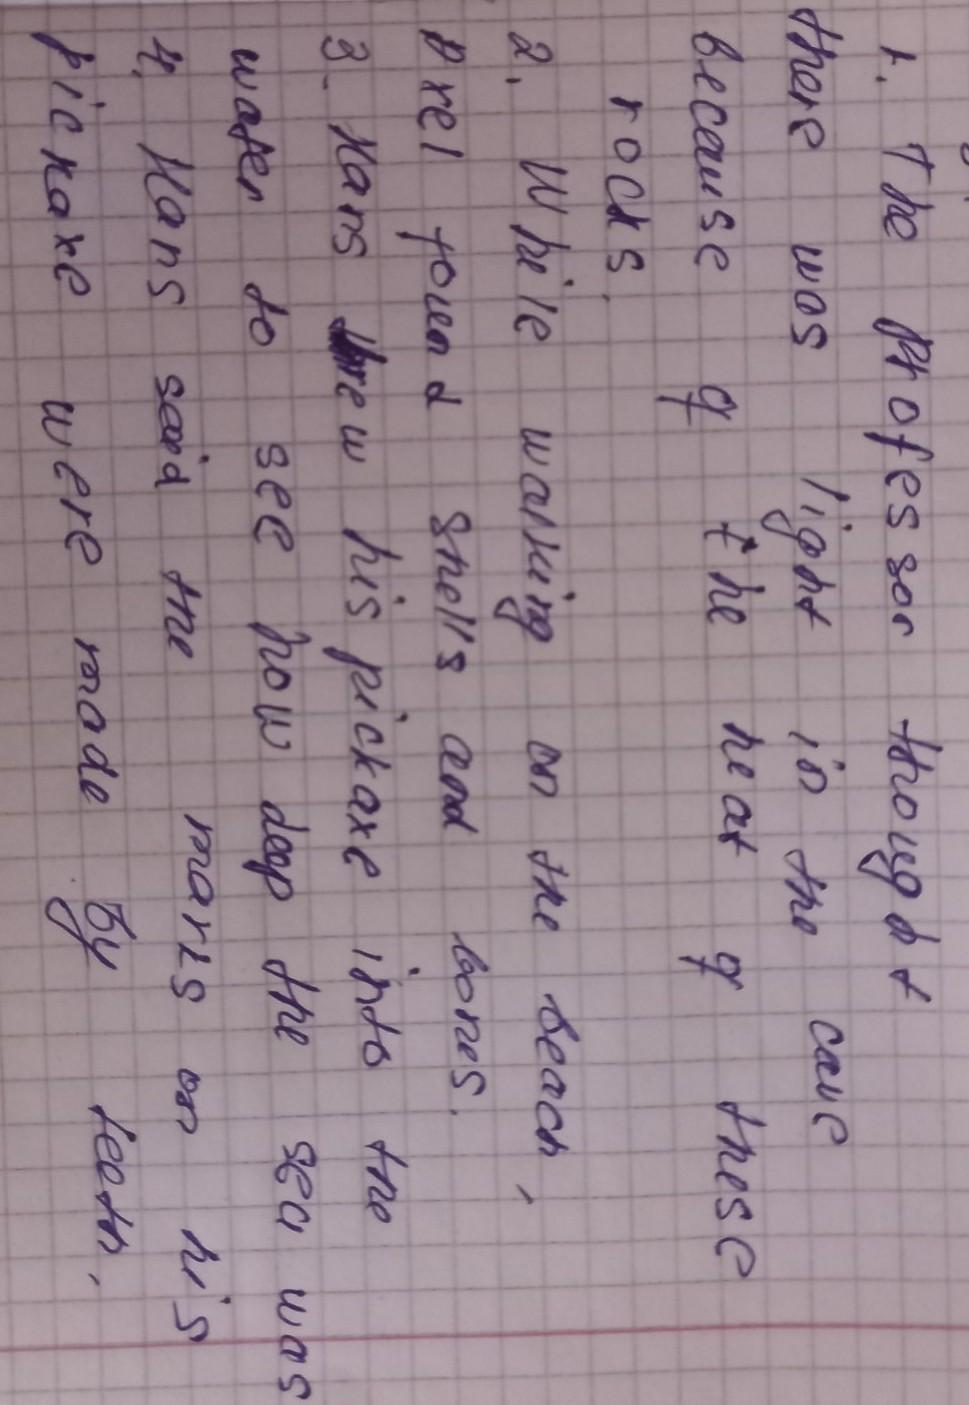 1. The professor thought
there was light in the cave
because of the heat of these
rocks.
2. While walking on the beach,
Axel found shells and bones.
3. Hans threw his pickaxe into the
water to see how deep the sea was
4. Hans said the marks on his
pickaxe were made by teeth.